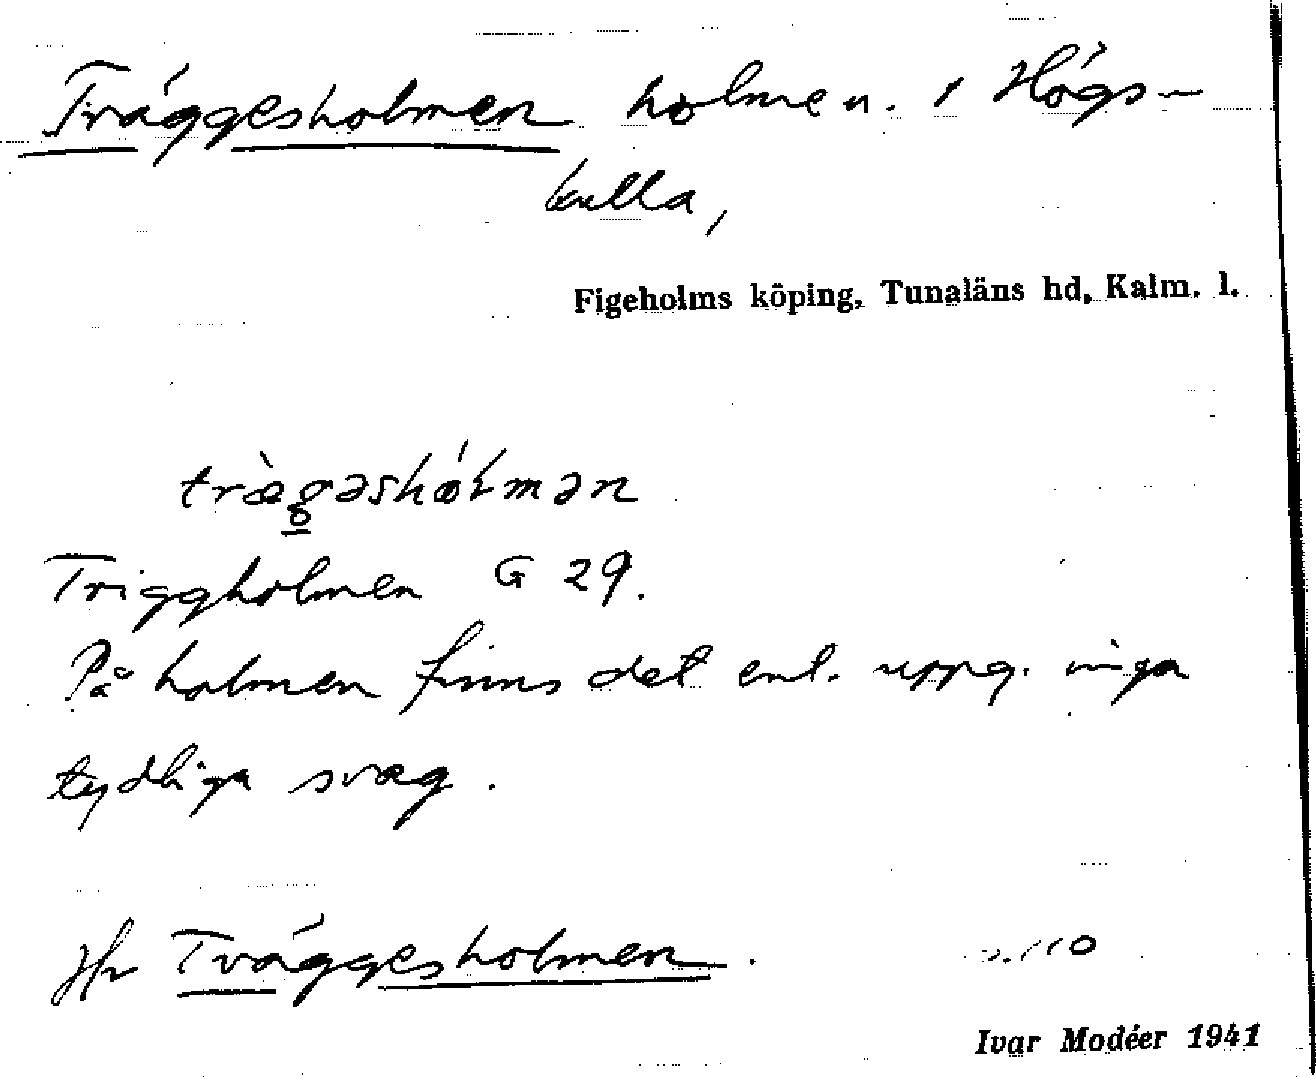 Träggesholmen holme n. i Högs-
kulla,
Figeholms köping, Tunaläns hd, Kalm. l.
træ̀gəshólmən
Triggholmen G 29.
På holmen finns det enl. uppg. inga
tydliga sväg.
Jfr Tväggesholmen.
Ivar Modéer 1941